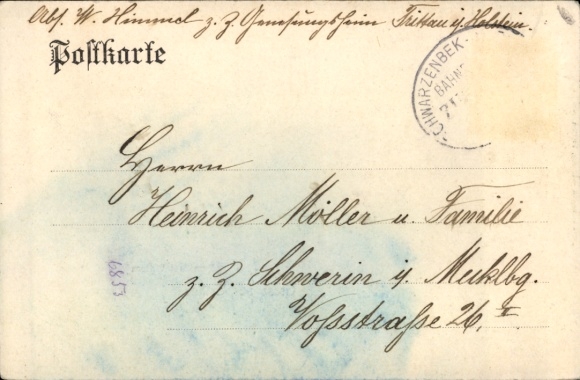 Abs. W. Himmel z. Z. Genesungsheim Trittau i. Holstein.
Postkarte
SCHWARZENBEK
BAHN
Herrn
Heinrich Möller u. Familie
z. Z. Schwerin i/ Mecklbg.
Vossstraße 26. II
6853